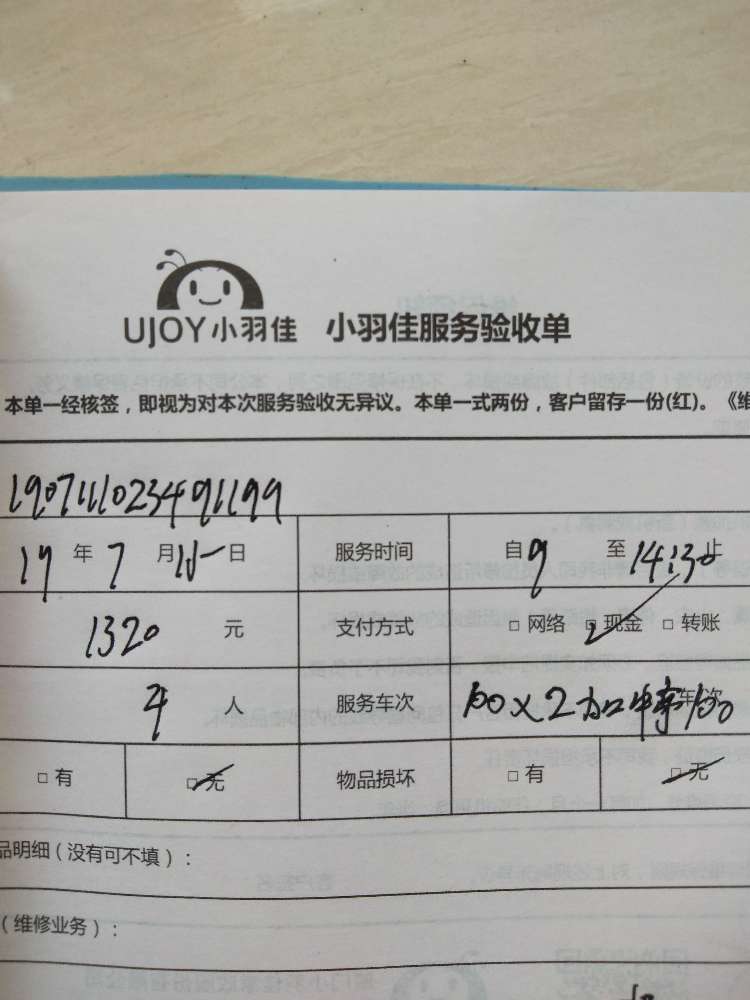 UJOY小羽佳 小羽佳服务验收单
本单一经核签，即视为对本次服务验收无异议。本单一式两份，客户留存一份(红)。《维
19年7月 日 服务时间 自9至14:30止
1320元 支付方式 □网络 □现金 □转账
4人 服务车次 100×2 车次
□有 □无 物品损坏 □有 □无
品明细（没有可不填）：
（维修业务）：